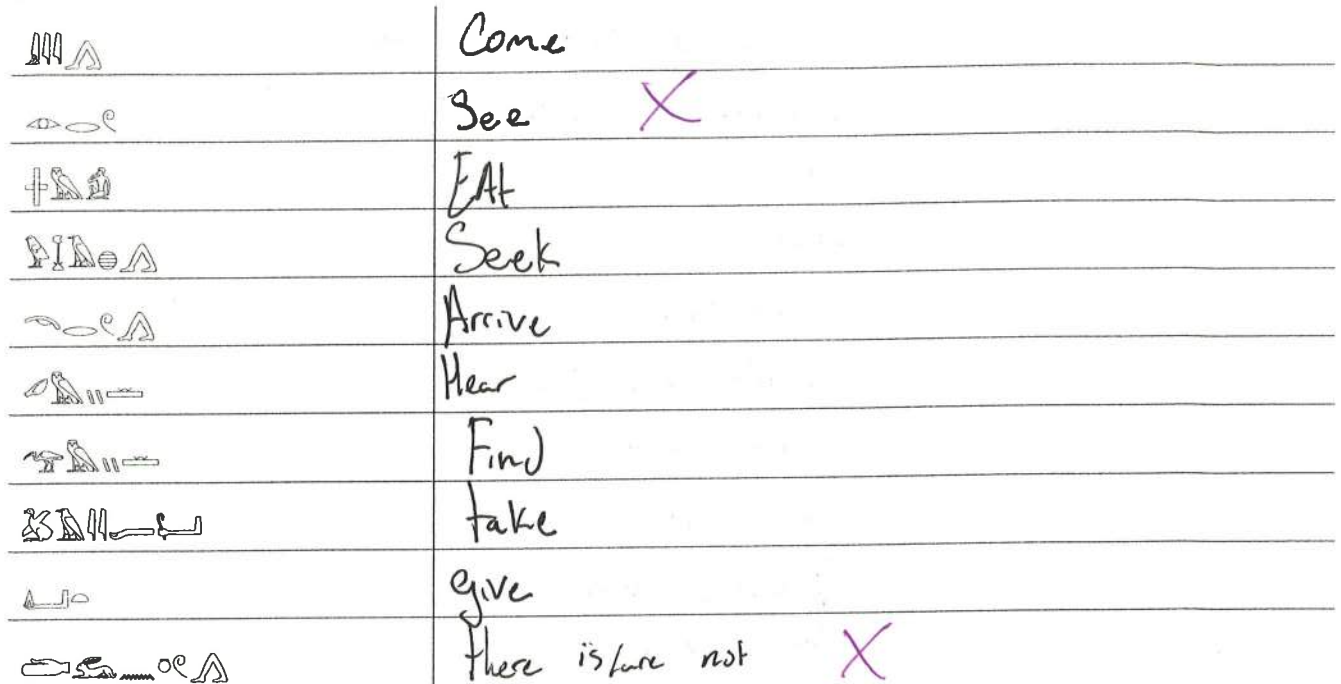 𓇍𓇋𓇋𓂻 Come
𓁹𓂋𓏲 See X
𓏶𓅓𓀁 EAt
𓅱𓆼𓄿𓐍𓂻 Seek
𓄴𓂋𓏲𓂻 Arrive
𓄔𓅓𓏭𓏛 Hear
𓅠𓅓𓏭𓏛 Find
𓅷𓄿𓇋𓇋 take
𓂞𓏏 give
𓂧𓃹𓈖𓏌𓏲𓂻 there is/are not X